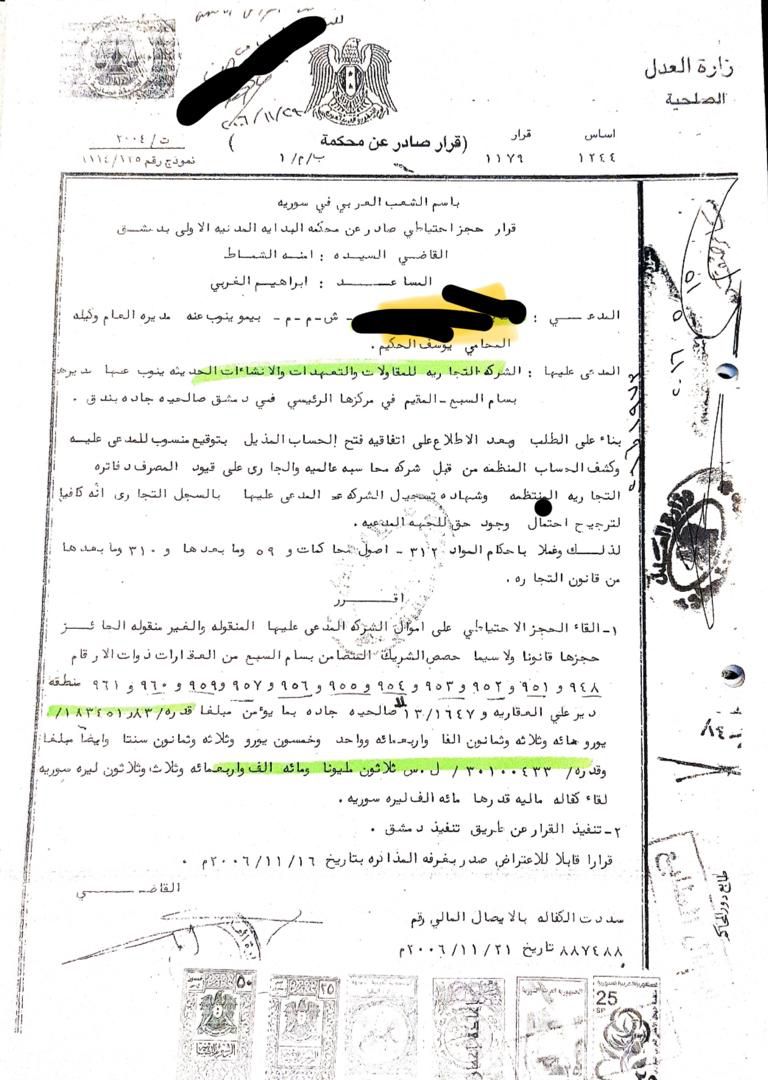 وزارة العدل
الصلحية
اساس
١٢٤٤
قرار
١١٧٩
(قرار صادر عن محكمة )
ب/م/١
ت/٢٠٠٤
نموذج رقم ١١١٤/١١٥
٢٠٠٦/١١/٢٩
باسم الشعب العربي في سوريه
قرار حجز احتياطي صادر عن محكمه البدايه المدنيه الاولى بدمشق
القاضي السيده : امنه الشماط
المساعد : ابراهيم الغربي
المدعي : - ش-م-م - يمو ينوب عنه مديره العام وكيله
المحامي يوسف الحكيم .
المدعى عليها : الشركه التجاريه للمقاولات والتعهدات والانشاءات الحديثه ينوب عنها مديرها
بسام السبع-المقيم في مركزها الرئيسي في دمشق صالحيه جاده بندق .
بناء على الطلب وبعد الاطلاع على اتفاقيه فتح الحساب المذيل بتوقيع منسوب للمدعى عليه
وكشف الحساب المنظمه من قبل شركه محاسبه عالميه والجارى على قيود المصرف دفاتره
التجاريه المنتظمه وشهاده تسجيل الشركه المدعى عليها بالسجل التجارى انه كافيا
لترجيح احتمال وجود حق للجهه المدعيه .
لذلك وعملا باحكام المواد ٣١٢ - اصول محاكمات و ٥٩ وما بعدها و ٣١٠ وما بعدها
من قانون التجاره .
اقرر
١-القاء الحجز الاحتياطي على اموال الشركه المدعى عليها المنقوله والغير منقوله الجائز
حجزها قانونا ولاسيما حصص الشريك المتضامن بسام السبع من العقارات ذوات الارقام
٩٤٨ و ٩٥١ و ٩٥٢ و ٩٥٣ و ٩٥٤ و ٩٥٥ و ٩٥٦ و ٩٥٧ و ٩٥٩ و ٩٦٠ و ٩٦١ منطقه
دير علي العقاريه و ١٣/١٦٤٧ صالحيه جاده بما يؤمن مبلغا قدره/٨٣ر١٨٣٤٥١/
يورو مائه وثلاثه وثمانون الفا واربعمائه وواحد وخمسون يورو وثلاثه وثمانون سنتا وايضا مبلغا
وقدره/ ٣٠١٠٠٤٣٣ / ل.س ثلاثون مليونا ومائه الف واربعمائه وثلاث وثلاثون ليره سوريه
لقاء كفاله ماليه قدرها مائه الف ليره سوريه .
٢-تنفيذ القرار عن طريق تنفيذ دمشق .
قرارا قابلا للاعتراض صدر بغرفه المذاكره بتاريخ ٢٠٠٦/١١/١٦م .
القاضي
سددت الكفاله بالايصال المالي رقم
٨٨٧٤٨٨ تاريخ ٢٠٠٦/١١/٢١م
طابع دور المحاكم
٥٠
٢٥
25
SP